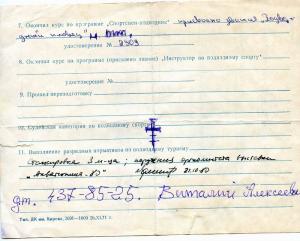 7. Окончил курс по программе „Спортсмен-подводник" присвоено звание „Звёзд-
ный пловец"
удостоверение № 2303
8. Окончил курс на программе (присвоено звание) „Инструктор по подводному спорту"
удостоверение №
9. Прошел переподготовку
10. Судейская категория по подводному спорту
11. Выполнение разрядных нормативов по подводному туризму
Стажировка 3 м-ца;
„Акватория-80" 21.10.80
дт. 437-85-25. Виталий Алексеевич
Тип. ДК им. Кирова, 3081—1000 26.XI.71 г.